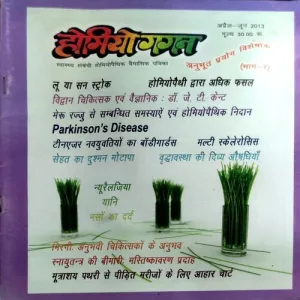 अप्रैल-जून 2013
मूल्य 30.00 रू.
होमियो गगन
स्वास्थ्य संबंधी होमियोपैथिक त्रैमासिक पत्रिका
अनुभूत प्रयोग विशेषांक
लू या सन स्ट्रोक होमियोपैथी द्वारा अधिक फसल
विद्वान चिकित्सक एवं वैज्ञानिक : डॉ. जे.टी. केन्ट
मेरू रज्जु से सम्बन्धित समस्याएँ एवं होमियोपैथिक निदान
Parkinson's Disease
टीनएजर नवयुवतियों का बॉडीगार्डस मल्टी स्केलेरोसिस
सेहत का दुश्मन मोटापा वृद्धावस्था की दिव्य औषधियाँ
न्यूरैलजिया
यानि
नसों का दर्द
मिरगी: अनुभवी चिकित्सकों के अनुभव
स्नायुतन्त्र की बीमारी: मस्तिष्कावरण प्रदाह
मूत्राशय पथरी से पीड़ित मरीजों के लिए आहार चार्ट